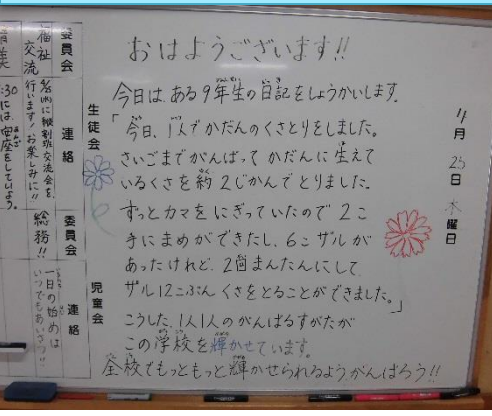 おはようございます!!
今日は、ある9年生の日記をしょうかいします。
「今日、1人でかだんのくさとりをしました。
さいごまでがんばってかだんに生えて
いるくさを約2じかんでとりました。
ずっとカマをにぎっていたので2こ
手にまめができたし、6こザルが
あったけれど、2回まんたんにして
ザル12こぶんくさをとることができました。」
こうした、1人1人のがんばるすがたが
この学校を輝かせています。
全校でもっともっと輝かせられるようがんばろう!!
月
日
水
曜
日
生徒会
児童会
委員会
連絡
委員会
連絡
福祉
交流
縦割班交流会を、
行います!お楽しみに!!
:30には
座をしていよう。
総務!!
一日の始めは
いつでもあいさつ!!